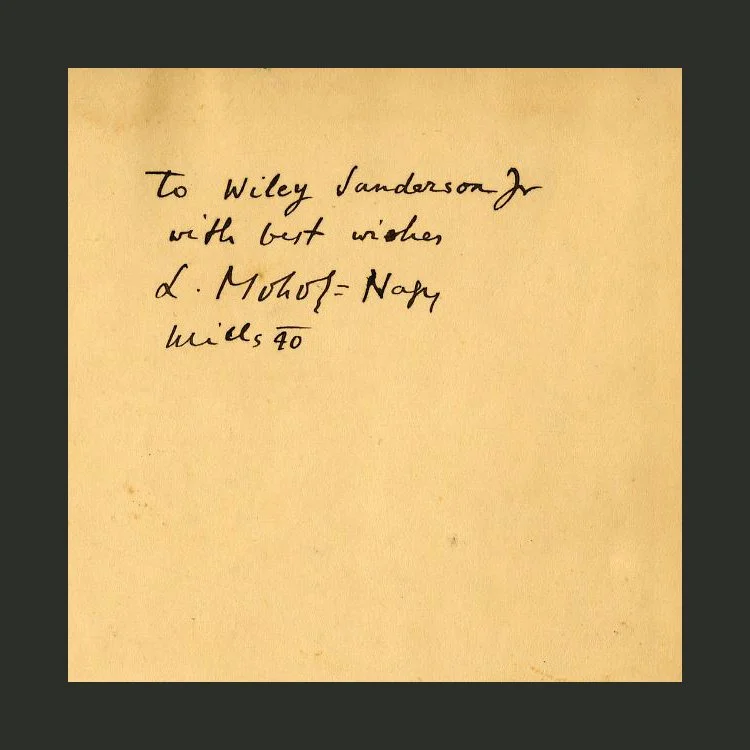 To Wiley Sanderson Jr
with best wishes
L. Moholy=Nagy
Mills 40